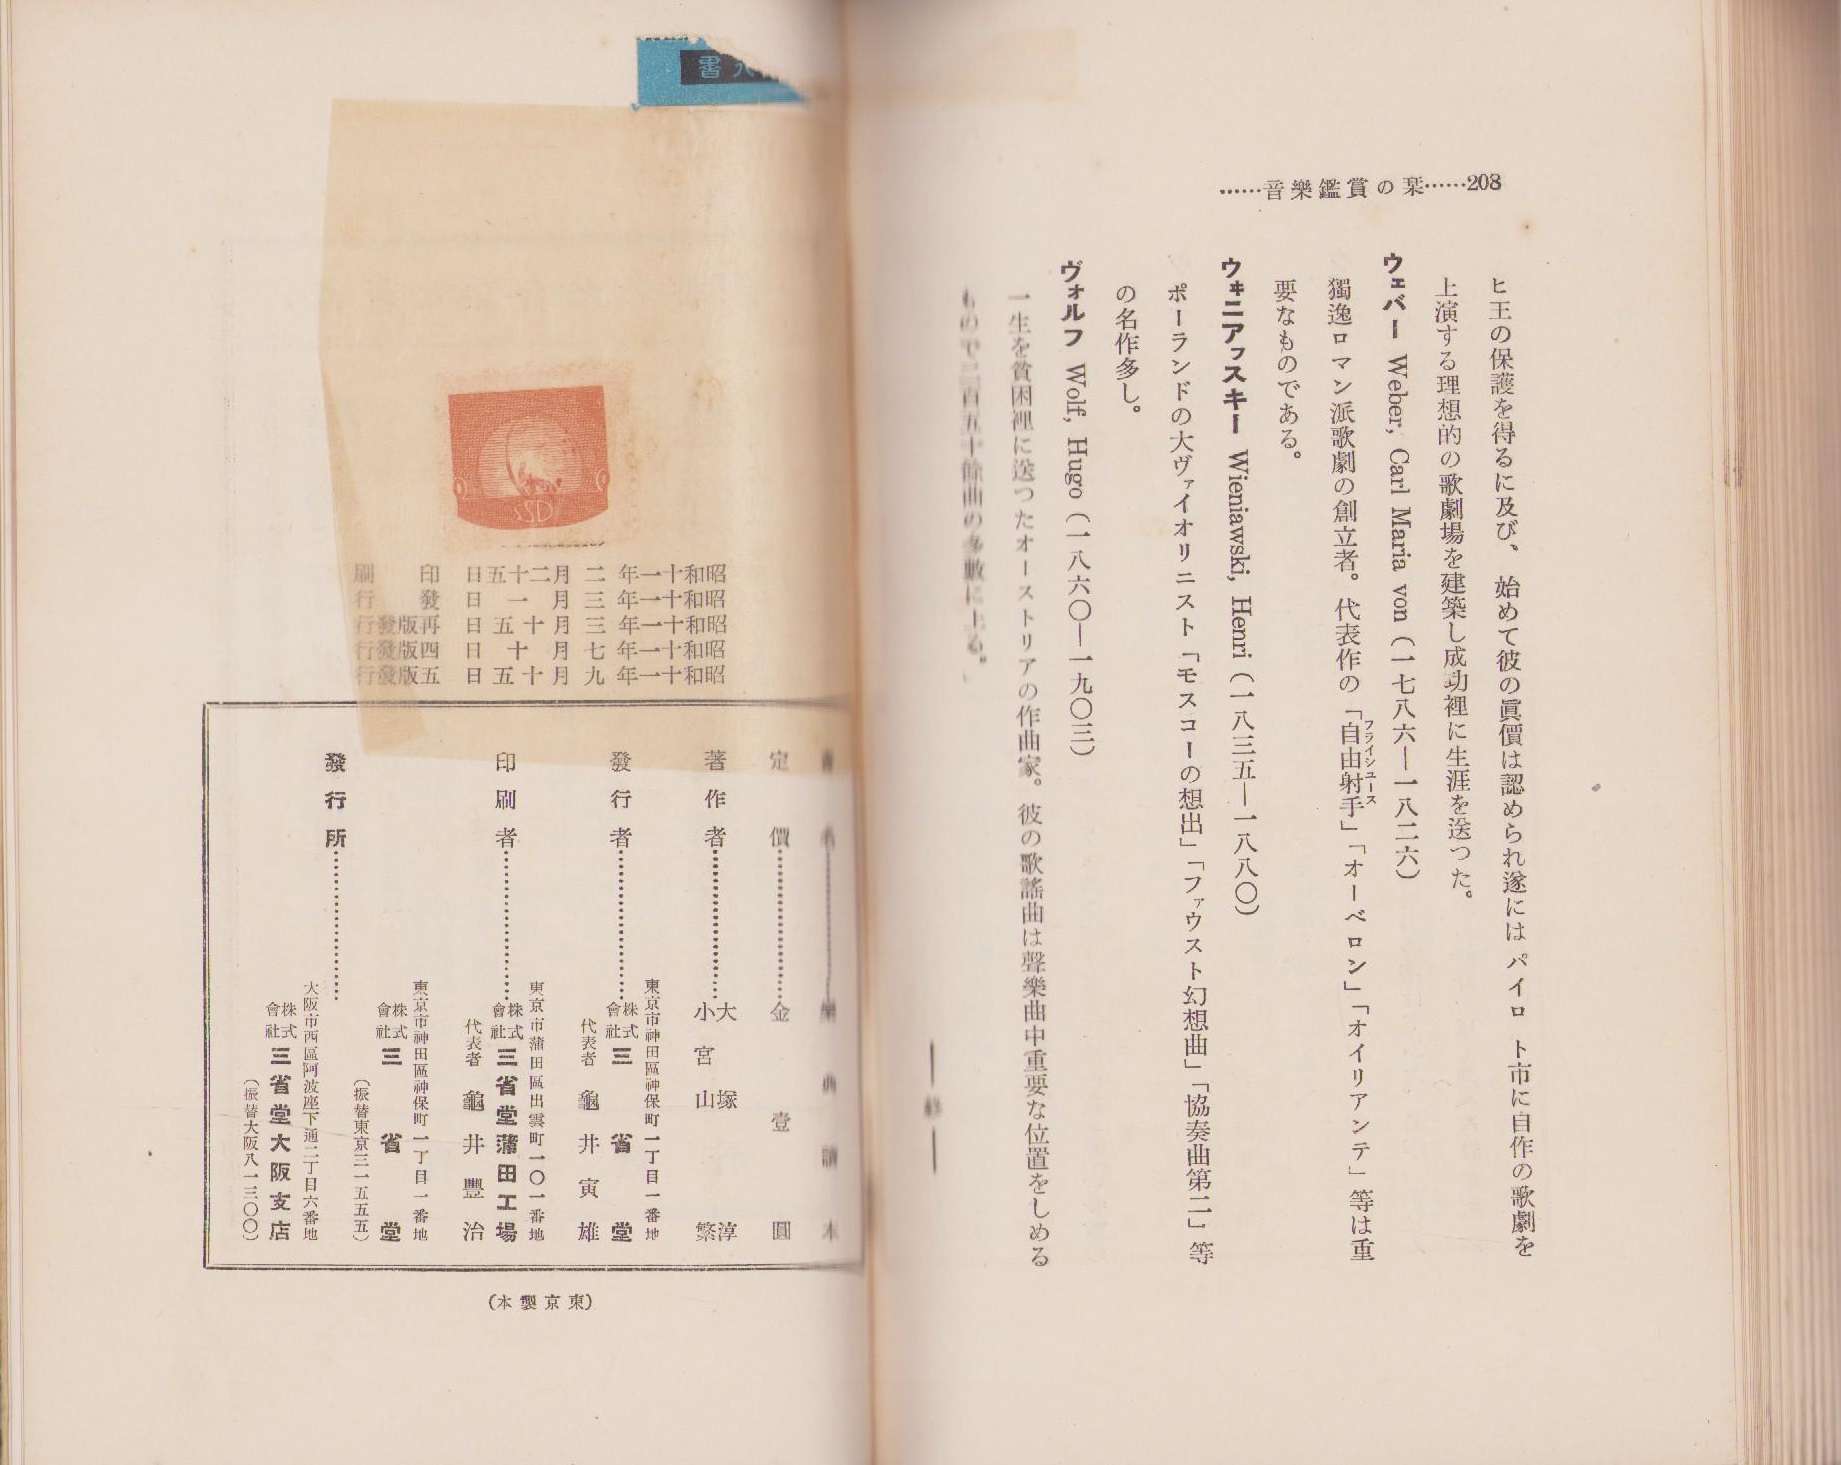 208……音樂鑑賞の栞……
ヒ王の保護を得るに及び、始めて彼の眞價は認められ遂にはパイロト市に自作の歌劇を
上演する理想的の歌劇場を建築し成功裡に生涯を送つた。
ウェバー Weber, Carl Maria von (一七八六—一八二六)
獨逸ロマン派歌劇の創立者。代表作の「自由射手」「オーベロン」「オイリアンテ」等は重
フライシュース
要なものである。
ウヰニアフスキー Wieniawski, Henri (一八三五—一八八〇)
ポーランドの大ヴァイオリニスト「モスコーの想出」「ファウスト幻想曲」「協奏曲第二」等
の名作多し。
ヴォルフ Wolf, Hugo (一八六〇—一九〇三)
一生を貧困裡に送つたオーストリアの作曲家。彼の歌謠曲は聲樂曲中重要な位置をしめる
もので二百五十餘曲の多數に上る。
—終—
SD
昭和十一年二月二十五日印刷
昭和十一年三月一日發行
昭和十一年三月十五日再版發行
昭和十一年七月十日四版發行
昭和十一年九月十五日五版發行
書名……樂典讀本
定價……金壹圓
著作者……大塚淳
小宮山繁
發行者……株式會社三省堂
東京市神田區神保町一丁目一番地
代表者 龜井寅雄
印刷者……株式會社三省堂蒲田工場
東京市蒲田區出雲町一〇一番地
代表者 龜井豐治
東京市神田區神保町一丁目一番地
株式會社三省堂
(振替東京三一五五五)
發行所……
大阪市西區阿波座下通二丁目六番地
株式會社三省堂大阪支店
(振替大阪八一三〇〇)
(東京製本)